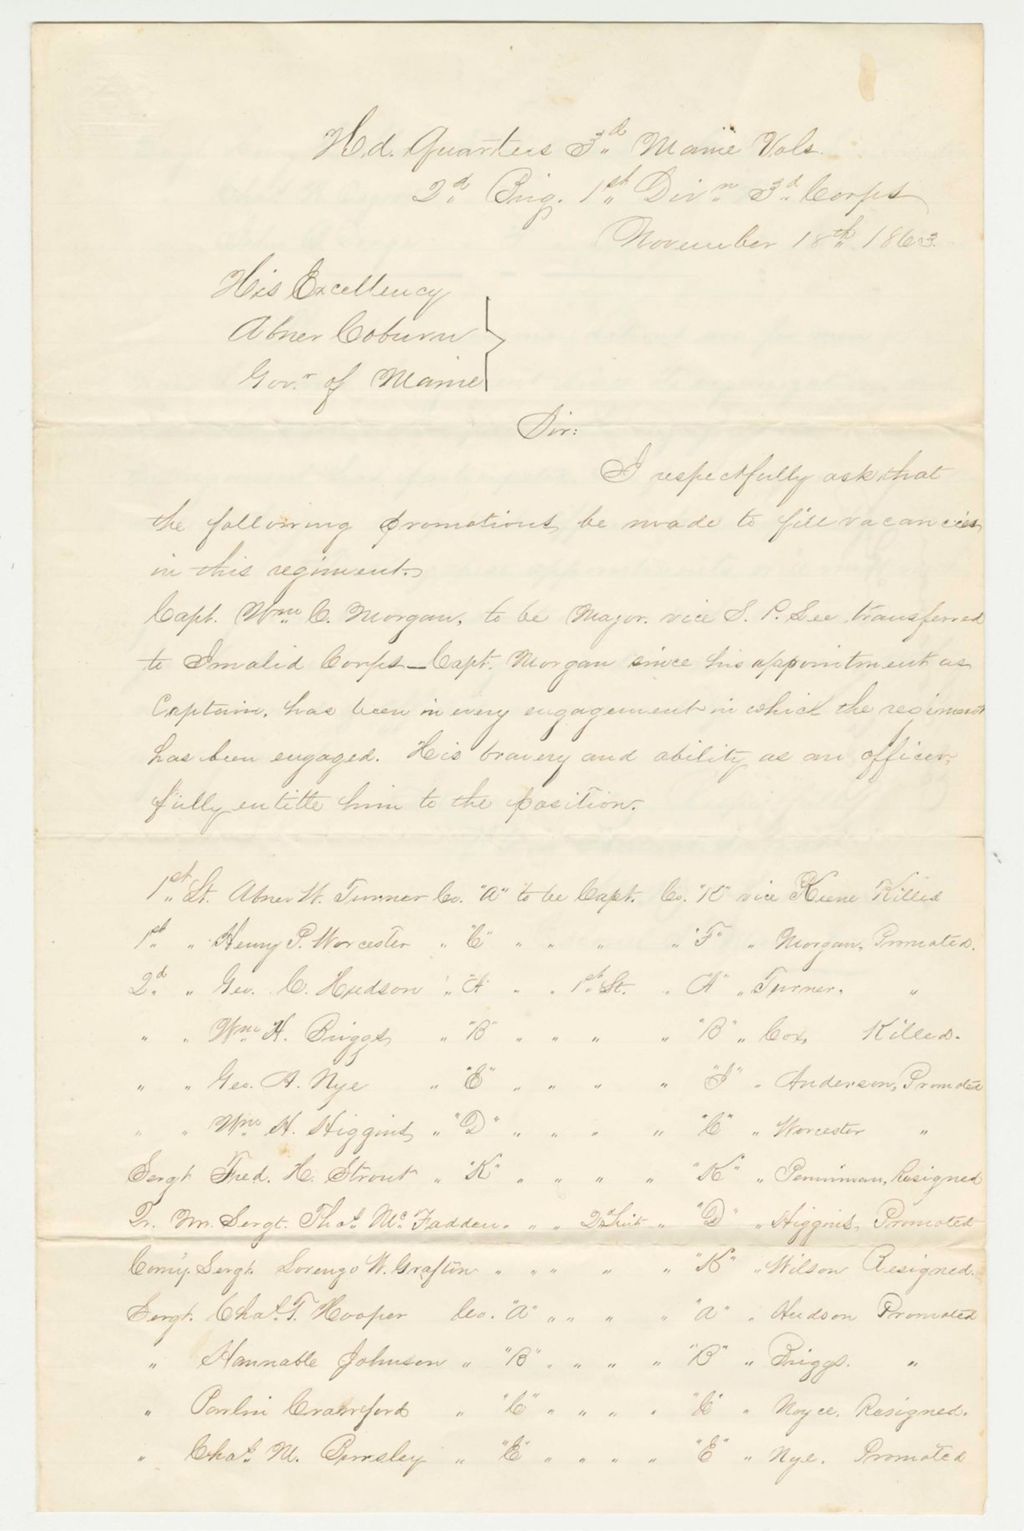 Hd. Quarters 3d Maine Vols.
2d Brig. 1st Divn 3d Corps
November 18th 1863.
His Excellency
Abner Coburn
Govr of Maine
Sir:
I respectfully ask that
the following promotions be made to fill vacancies
in this regiment.
Capt. Wm C. Morgan, to be Major. vice S. P. Lee transferred
to Invalid Corps — Capt. Morgan since his appointment as
Captain, has been in every engagement in which the regiment
has been engaged. His bravery and ability as an officer
fully entitle him to the position.
1st Lt. Abner W. Turner Co. "A" to be Capt. Co. "K" vice Keene Killed
1st " Henry P. Worcester " "C" " " " " "F" " Morgan, Promoted.
2d " Geo. C. Hudson " "A" " " 1st Lt. " "A" " Turner, "
" " Wm H. Briggs " "B" " " " " "B" " Cox, Killed.
" " Geo. A. Nye " "E" " " " " "I" " Anderson, Promoted
" " Wm H. Higgins " "D" " " " " "C" " Worcester "
Sergt Fred. H. Strout " "K" " " " " "K" " Penniman, Resigned
Qr. Mr. Sergt. Thos McFadden. " " 2d Lieut " "D" " Higgins. Promoted
Comy. Sergt. Lorenzo W. Grafton " " " " "K" " Wilson Resigned.
Sergt. Chas. T. Hooper Co. "A" " " " " "A" " Hudson Promoted
" Hannable Johnson " "B" " " " " "B" " Briggs. "
" Parlin Crawford " "C" " " " " "C" " Noyce. Resigned.
" Chas M. " "E" " " " " "E" " Nye. Promoted